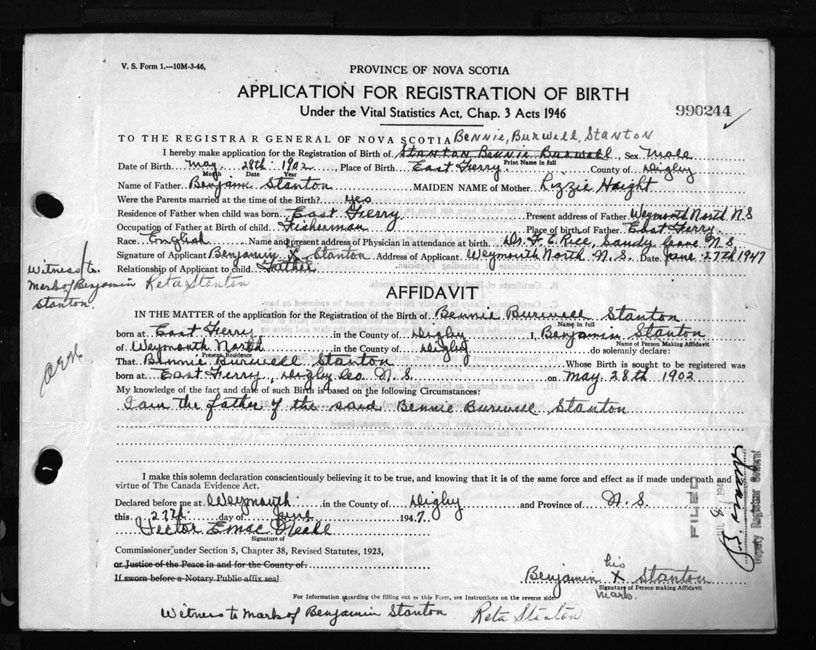 V. S. Form 1.—10M-3-46.
PROVINCE OF NOVA SCOTIA
APPLICATION FOR REGISTRATION OF BIRTH
Under the Vital Statistics Act, Chap. 3 Acts 1946
990244
TO THE REGISTRAR GENERAL OF NOVA SCOTIA Bennie, Burwell, Stanton
I hereby make application for the Registration of Birth of Stanton Bennie Burwell, Sex Male
Print Name in full
Date of Birth May 28th 1902 Place of Birth East Ferry. County of Digby
Month Date Year
Name of Father Benjamin Stanton MAIDEN NAME of Mother Lizzie Haight
Were the Parents married at the time of Birth? yes
Residence of Father when child was born East Ferry Present address of Father Weymouth North N.S
Occupation of Father at Birth of child Fisherman Place of birth of Father East Ferry.
Race. English Name and present address of Physician in attendance at birth Dr. F. E. Rice, Sandy Cove N.S.
Signature of Applicant Benjamin X Stanton Address of Applicant Weymouth North N.S. Date June 27th 1947
Relationship of Applicant to child Father
Witness to Mark of Benjamin Stanton.
Reta Stanton
AFFIDAVIT
IN THE MATTER of the application for the Registration of the Birth of Bennie Burwell Stanton
Name in full
born at East Ferry in the County of Digby I, Benjamin Stanton
Name of Person Making Affidavit
of Weymouth North in the County of Digby do solemnly declare:
Present Residence
That Bennie Burwell Stanton Whose Birth is sought to be registered was
born at East Ferry, Digby Co. N.S. on May 28th 1902
My knowledge of the fact and date of such Birth is based on the following Circumstances:
I am the father of the said Bennie Burwell Stanton
I make this solemn declaration conscientiously believing it to be true, and knowing that it is of the same force and effect as if made under oath and
virtue of The Canada Evidence Act.
Declared before me at Weymouth in the County of Digby and Province of N.S.
this 27th day of June 1947.
Signature of
Commissioner under Section 5, Chapter 38, Revised Statutes, 1923,
or Justice of the Peace in and for the County of
If sworn before a Notary Public affix seal
Benjamin his X Stanton
mark
Signature of Person making Affidavit
For Information regarding the filling out of this Form, see Instructions on the reverse side
Witness to Mark of Benjamin Stanton Reta Stanton
FILED
Deputy Registrar General